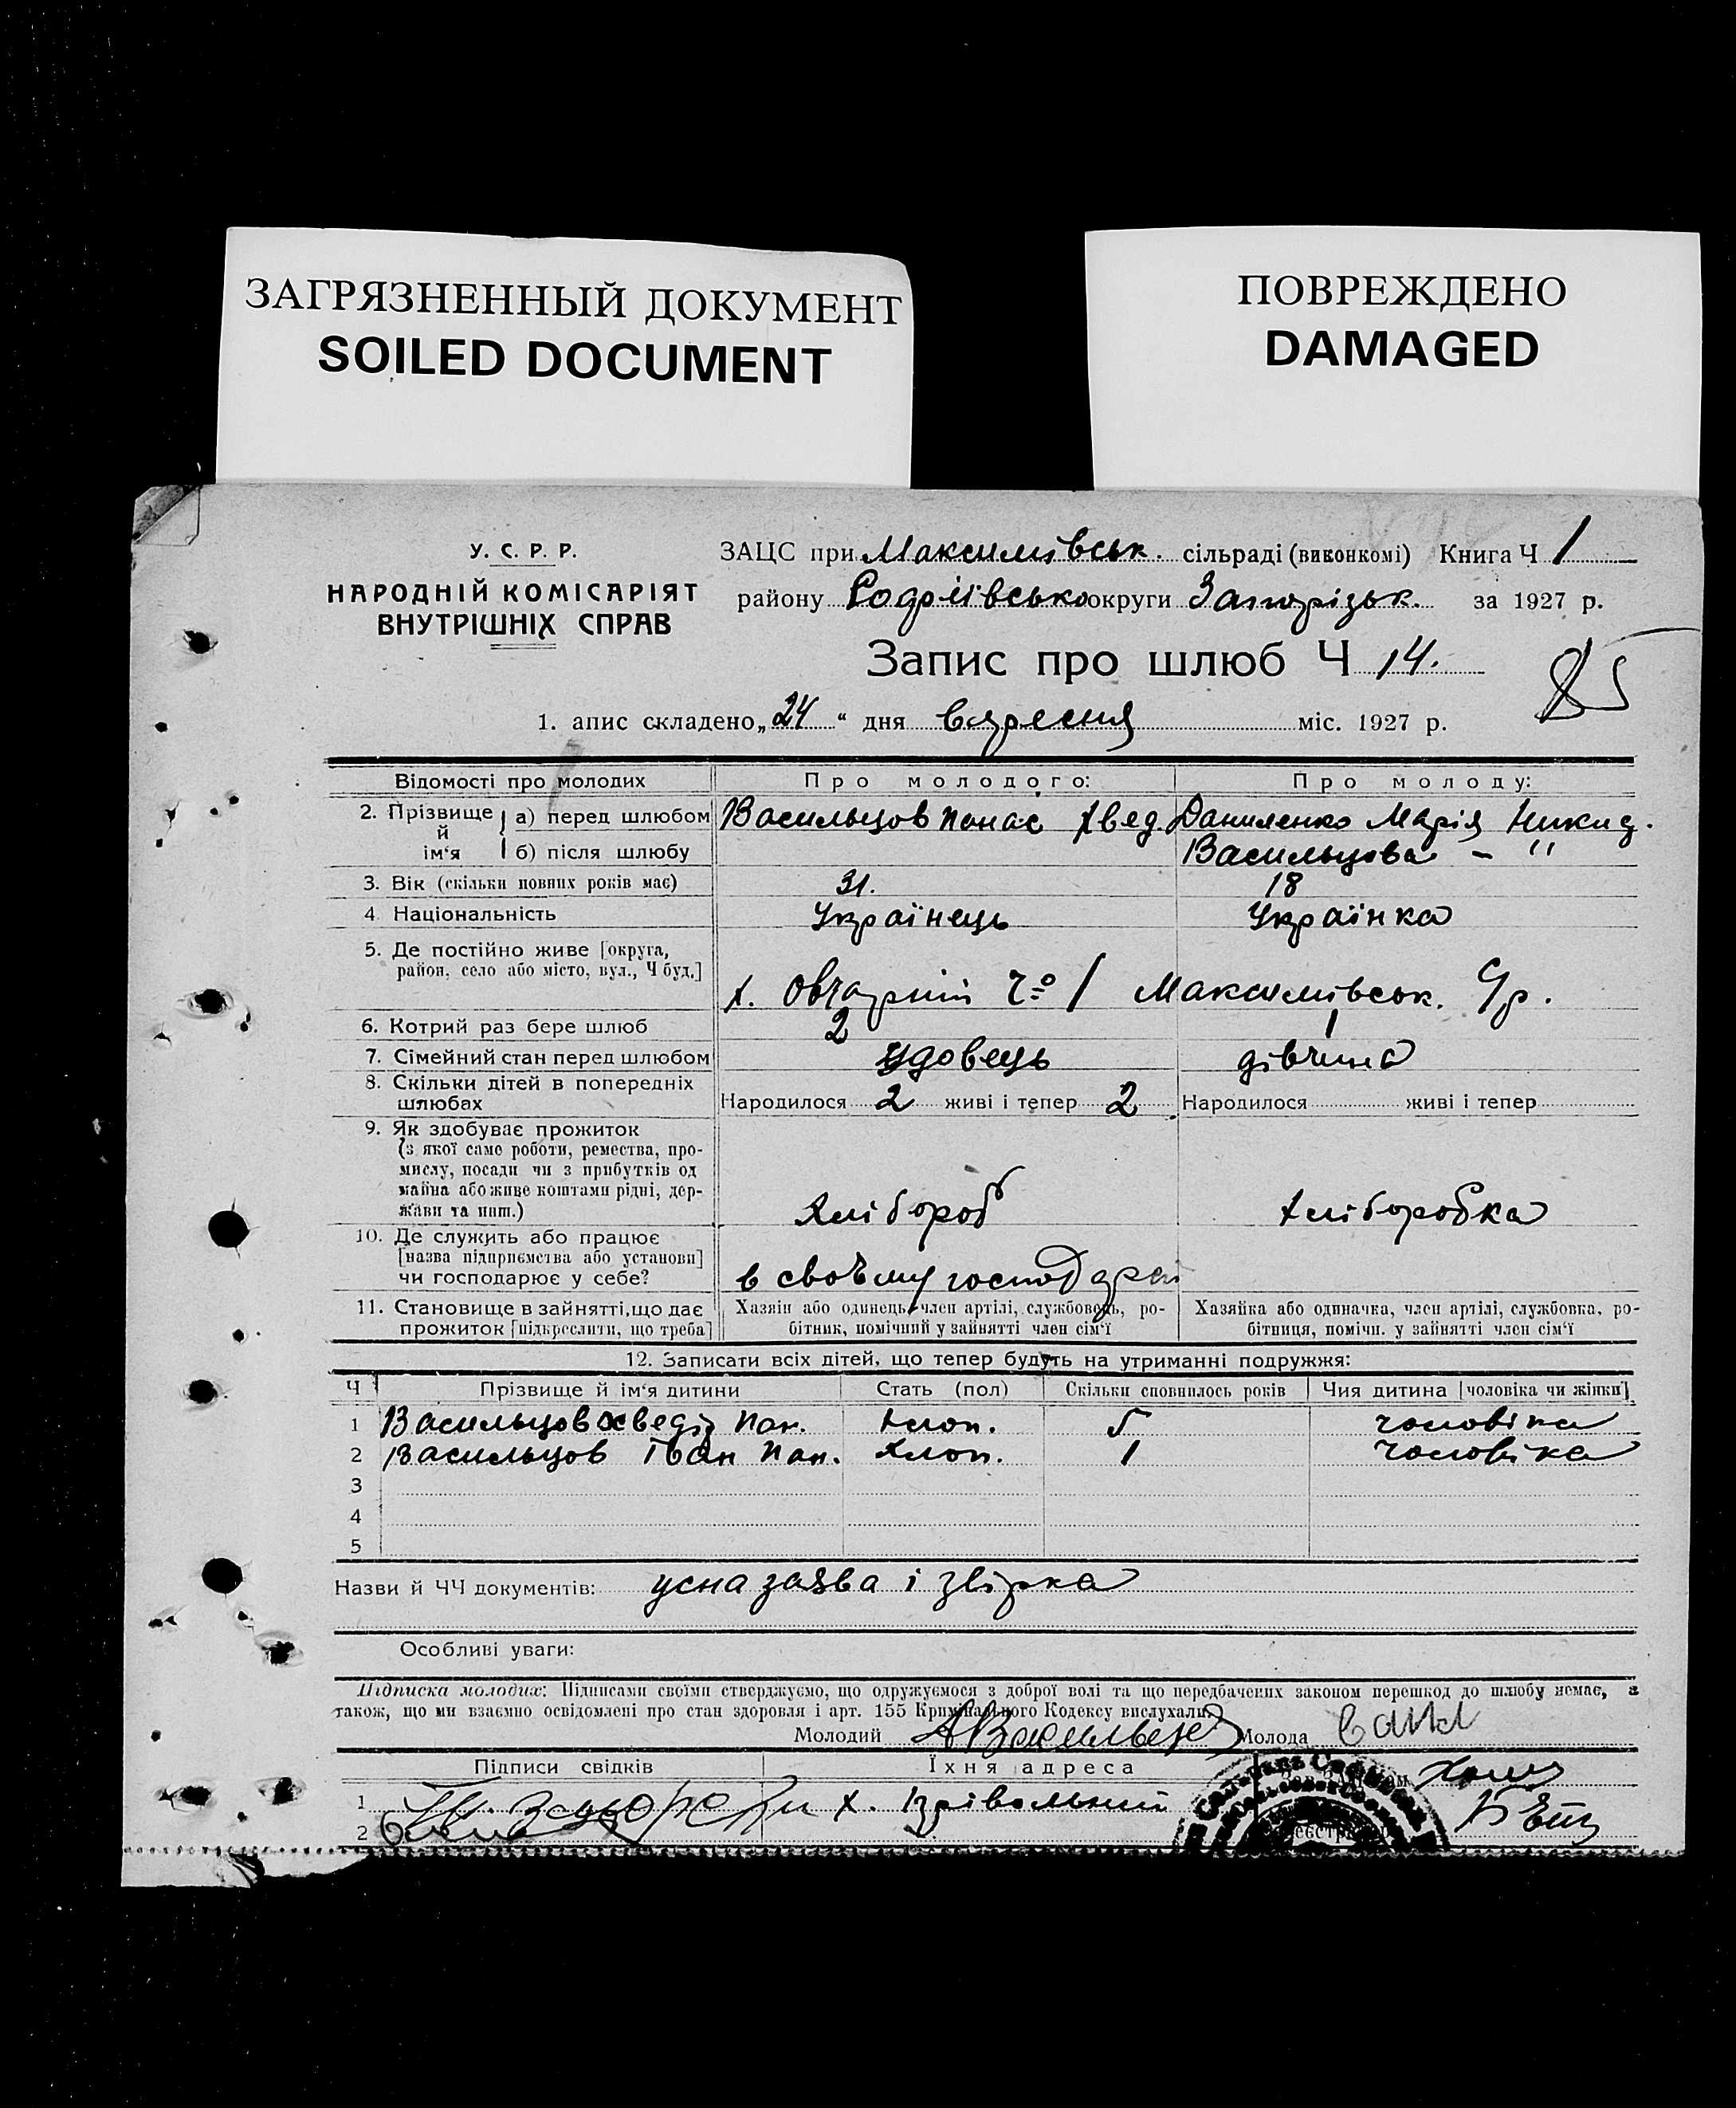 ЗАГРЯЗНЕННЫЙ ДОКУМЕНТ
SOILED DOCUMENT
ПОВРЕЖДЕНО
DAMAGED
У. С. Р. Р.
НАРОДНІЙ КОМІСАРІЯТ
ВНУТРІШНІХ СПРАВ
ЗАЦС при Максимівськ. сільраді (виконкомі) Книга Ч 1
району округи Запорізьк. за 1927 р.
Запис про шлюб Ч 14.
85
1. апис складено „24“ дня вересня міс. 1927 р.
Відомості про молодих Про молодого: Про молоду:
2. Прізвище й ім‘я а) перед шлюбом Васильцов Панас Хвед. Даниленко Марія Никид.
б) після шлюбу Васильцова – "
3. Вік (скільки повних років має) 31. 18
4 Національність Українець Українка
5. Де постійно живе [округа,
район, село або місто, вул., Ч буд.] х. Овчарний Ч० 1 Максимівськ. С/р.
6. Котрий раз бере шлюб 2 1
7. Сімейний стан перед шлюбом удовець дівчина
8. Скільки дітей в попередніх
шлюбах Народилося 2 живі і тепер 2 Народилося живі і тепер
9. Як здобуває прожиток
(з якої саме роботи, ремества, про-
мислу, посади чи з прибутків од
майна або живе коштами рідні, дер-
жави та инш.) Хлібороб Хліборобка
10. Де служить або працює
[назва підприємства або установи]
чи господарює у себе? в своъму
11. Становище в зайнятті, що дає
прожиток [підкреслити, що треба]
Хазяїн або одинець, член артілі, службовець, ро-
бітник, помічний у зайнятті член сім‘ї
Хазяйка або одиначка, член артілі, службовка, ро-
бітниця, помічн. у зайнятті член сім‘ї
12. Записати всіх дітей, що тепер будуть на утриманні подружжя:
Ч Прізвище й ім‘я дитини Стать (пол) Скільки сповнилось років Чия дитина [чоловіка чи жінки]
1 Васильцов Хведір Пан. Хлоп. 5 чоловіка
2 Васильцов Іван Пан. Хлоп. 1 чоловіка
3
4
5
Назви й ЧЧ документів: усна заява і звірка
Особливі уваги:
Підписка молодих: Підписами своїми стверджуємо, що одружуємося з доброї волі та що передбачених законом перешкод до шлюбу немає, а
також, що ми взаємно освідомлені про стан здоровля і арт. 155 Кримінального Кодексу вислухали.
Молодий АВасильцов Молода
Підписи свідків Їхня адреса
1 х.
2